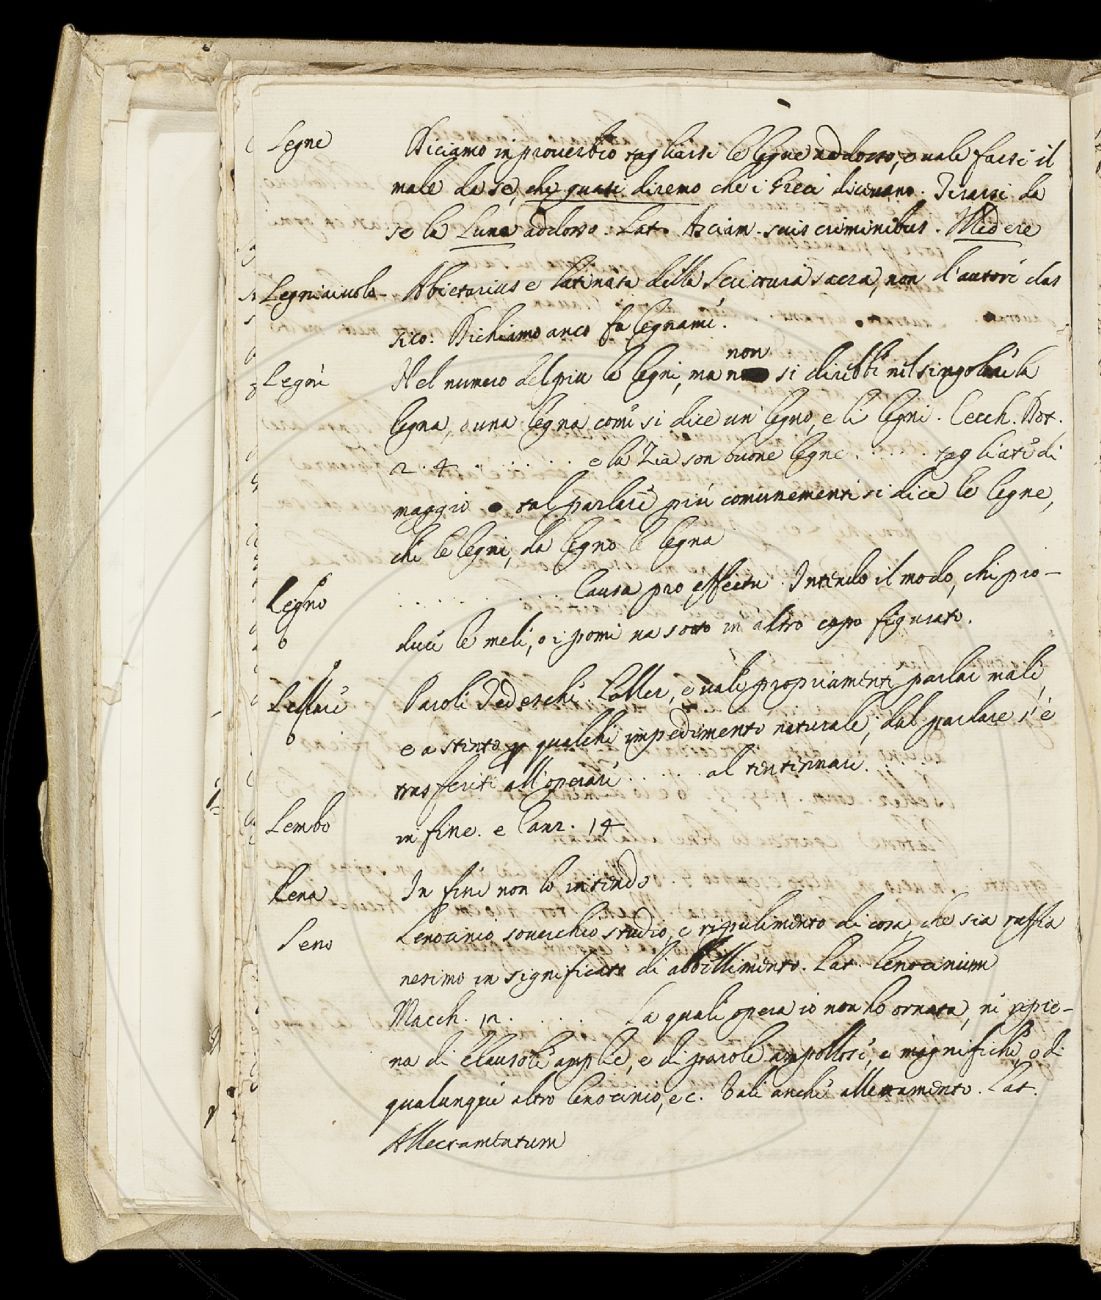 Legne Diciamo in proverbio tagliarsi le legne addosso, e vale farsi il
male da se, che quasi diremo che i Greci dicevano. Tirarsi da
se la Luna addosso. Lat. Asciam suis criminibus. Medere
Legniaiuolo Abietarius e latinata della Scrittura sacra, non d'autore clas
sico. Dichiamo anco fa legnami.
Legni Nel numero del piu le legni, ma non si direbbe nel singolare la
legna, o una legna, come si dice un legno, e li legni. Cecch. Dot.
2. 4. . . . . . e la Zia son buone legne . . . . tagliate di
maggio nel parlare più comunemente si dice le legne,
che le legni, da legno le legna
Legno . . . . . . . . Causa pro effectu. Intendo il modo, che pro-
o duce le mele, o i pomi va sotto in altro capo figurato.
Lellare Parole Tedesche Laller, e vale propriamente parlar male
o e a stento p qualche impedimento naturale; dal parlare s'è
trasferite all'operare . . . . . al tentennare. . .
Lembo in fine. e Canz. 14
Lena In fine non lo intendo.
Leno Lenocinio soverchio studio, e ripulimento di cosa che sia ruffia
nesimo in significato di abbellimento. Lat. Lenocinium
Macch. . . . . . La quale opera io non ho ornata, ne ripie-
na di clausole amplie, e di parole ampollose, e magnifiche, o di
qualunque altro lenocinio, ec. Vale anche allettamento. Lat.
Allectamentum